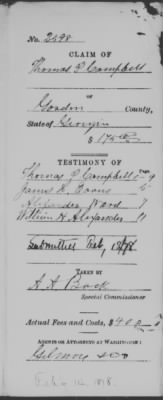 No. 2698
CLAIM OF
Thomas G. Campbell
of
Gordon County,
State of Georgia
$ 175.00
TESTIMONY OF
Thomas G. Campbell 1-9
James H. Evans 5
Alexander Ward 7
William H. Alexander 11
Submitted Feb, 1878
TAKEN BY
A. A. Buck
Special Commissioner
Actual Fees and Costs, $
AGENTS OR ATTORNEYS AT WASHINGTON:
Gilmore & Co
Feb 1878.